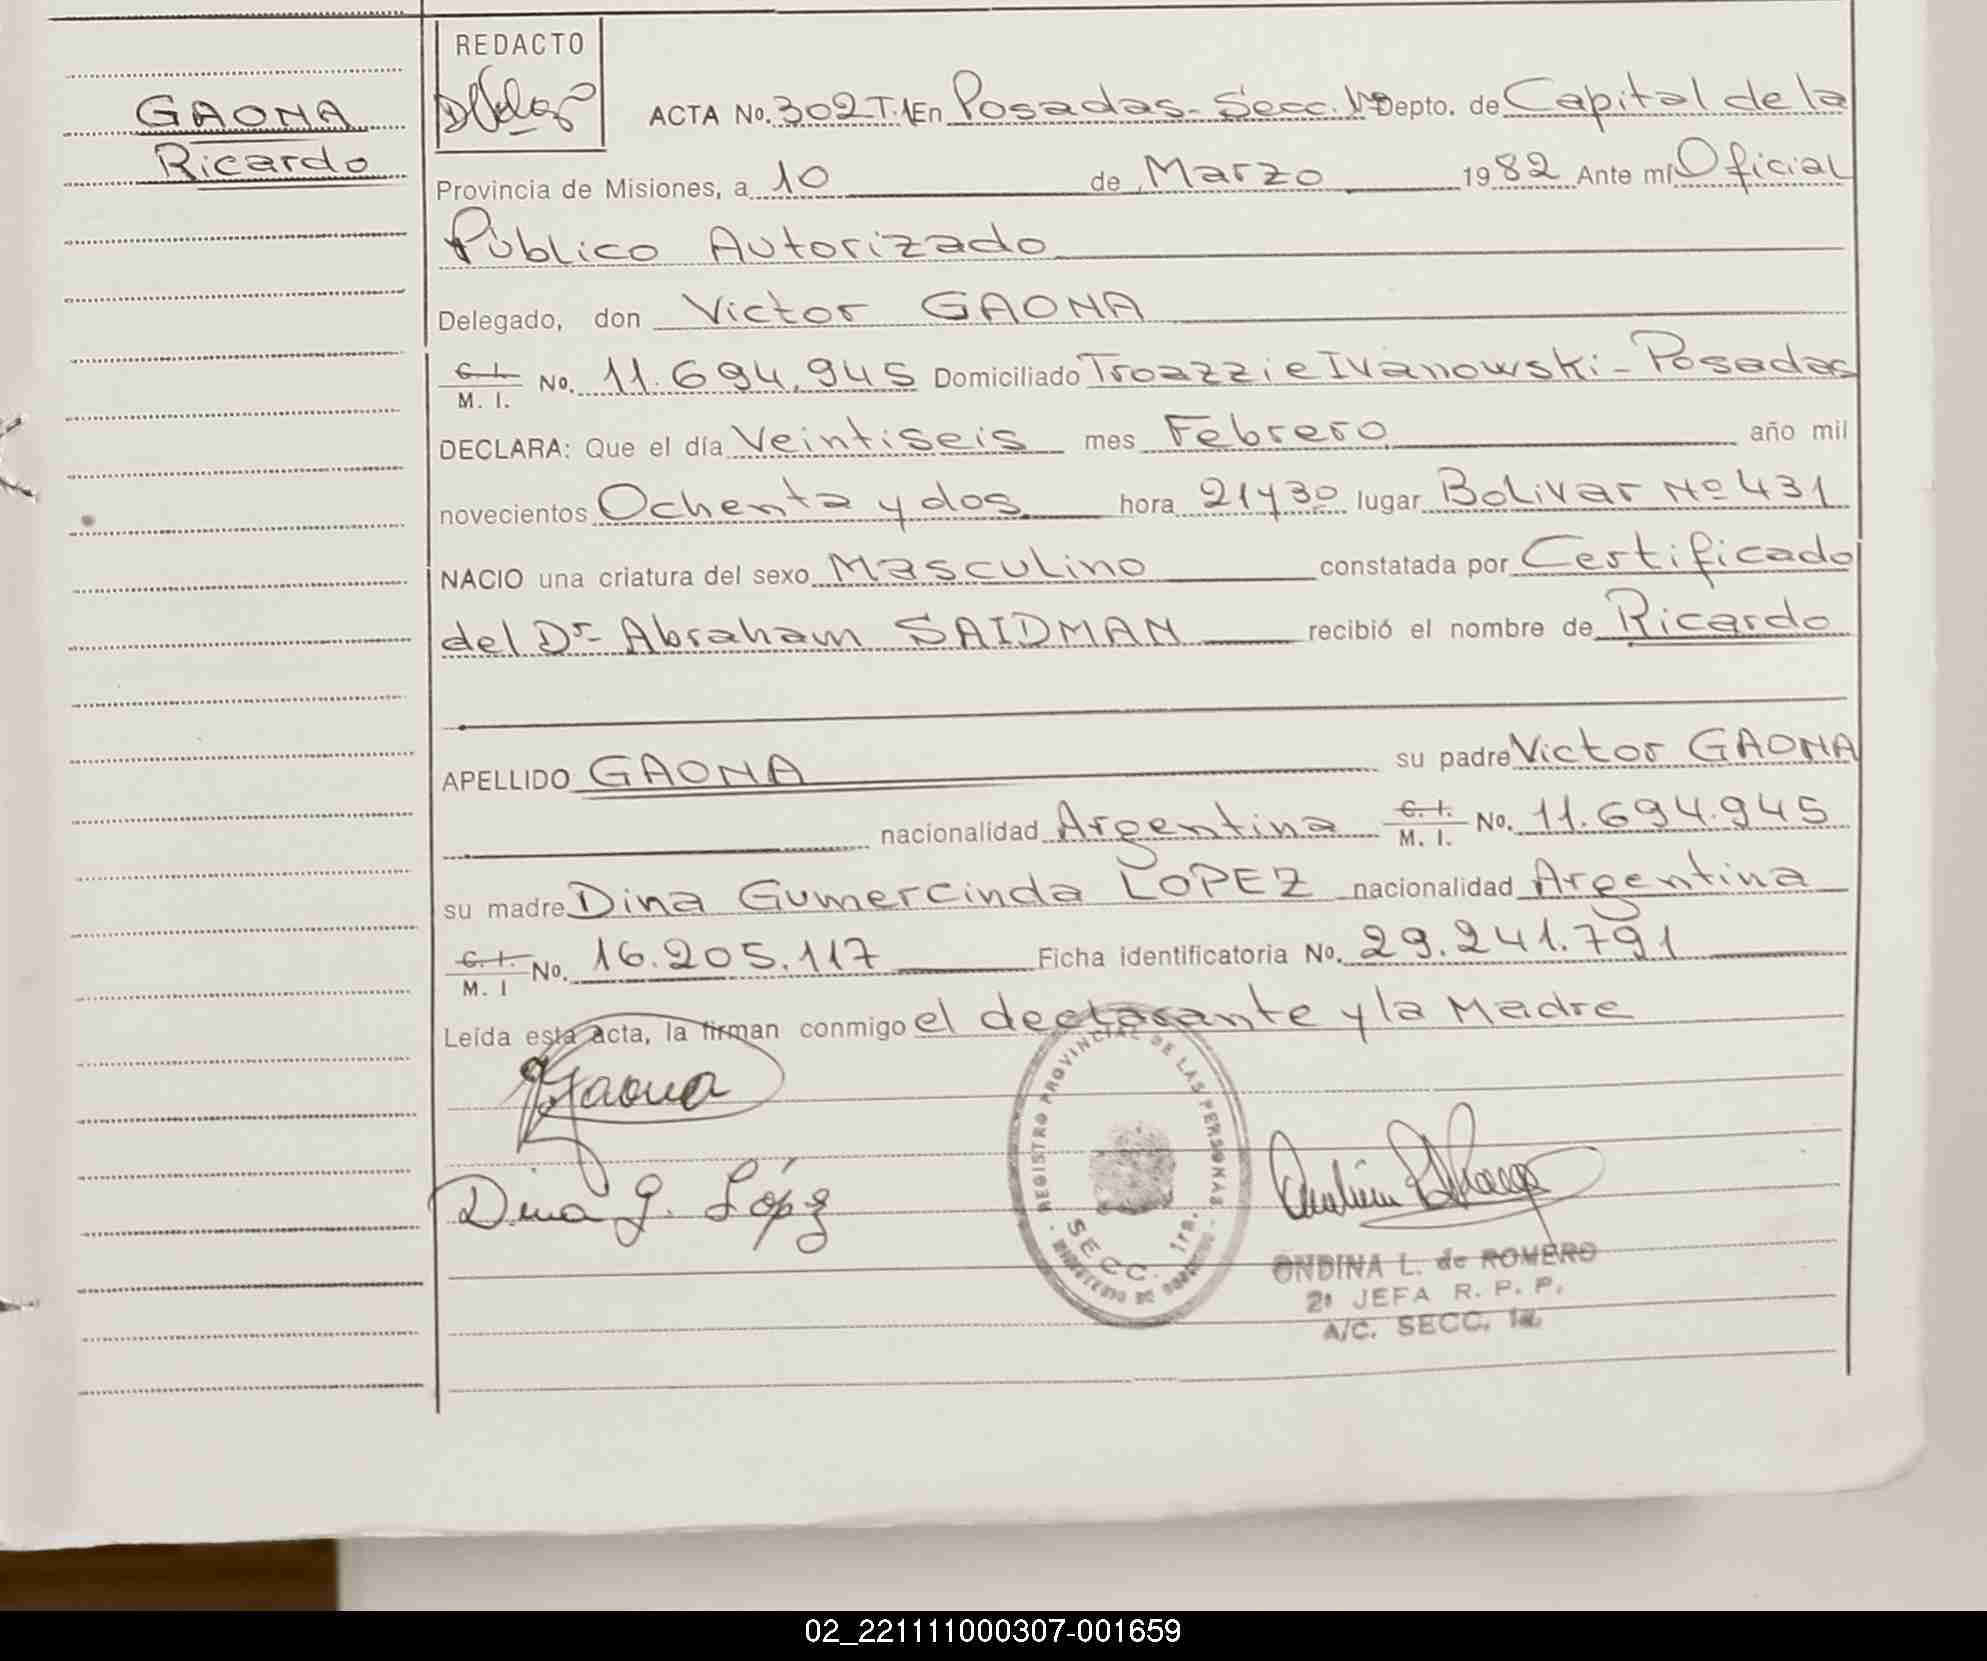 GAONA
Ricardo
REDACTO
ACTA No. 302 T.1 En Posadas - Secc. 1ra Depto. de Capital de la
Provincia de Misiones, a 10 de Marzo 1982 Ante mí Oficial
Público Autorizado
Delegado, don Victor GAONA
C. I. / M. I. No. 11.694.945 Domiciliado Troazzi e Ivanowski - Posadas
DECLARA: Que el día Veintiseis mes Febrero año mil
novecientos Ochenta y dos hora 21 y 30 lugar Bolivar Nº 431
NACIO una criatura del sexo Masculino constatada por Certificado
del Dr. Abraham SAIDMAN recibió el nombre de Ricardo
APELLIDO GAONA su padre Victor GAONA
nacionalidad Argentina C. I. / M. I. No. 11.694.945
su madre Dina Gumercinda LOPEZ nacionalidad Argentina
C. I. / M. I No. 16.205.117 Ficha identificatoria No. 29.241.791
Leída esta acta, la firman conmigo el declarante y la Madre
Gaona
Dina G. López
REGISTRO PROVINCIAL DE LAS PERSONAS
SECC. 1ra.
ONDINA L. de ROMERO
2ª JEFA R. P. P.
A/C. SECC. 1a.
02_221111000307-001659